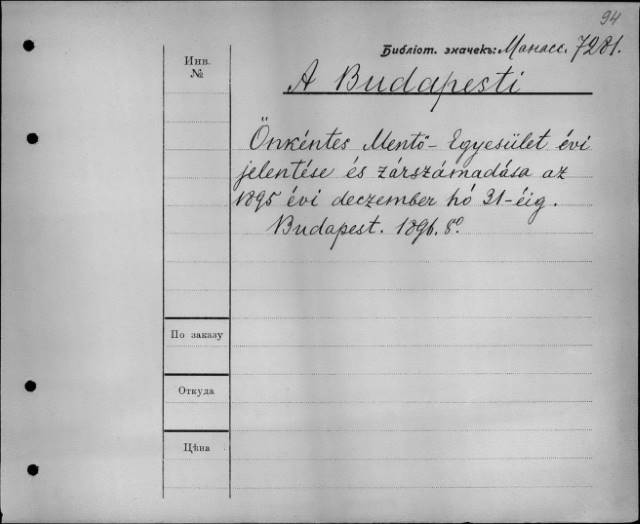 94
Библіот. значекъ: Манасс. 7281.
Инв.
№
A Budapesti
Önkéntes Mentő-Egyesület évi
jelentése és zárszámadása az
1895 évi deczember hó 31-éig.
Budapest. 1896. 8º.
По заказу
Откуда
Цѣна